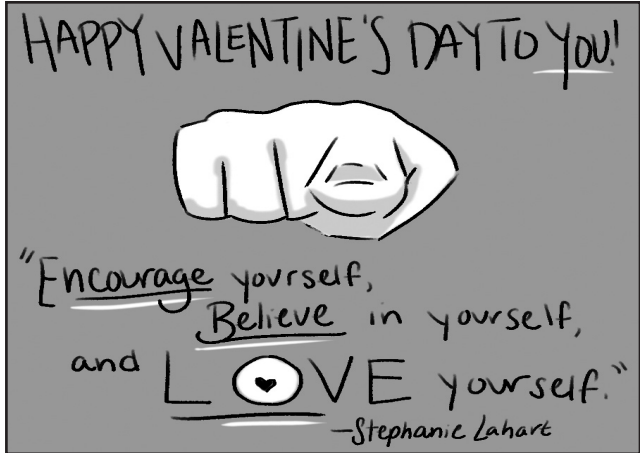 HAPPY VALENTINE'S DAY TO YOU!
"Encourage yourself,
Believe in yourself,
and LOVE yourself."
—Stephanie Lahart